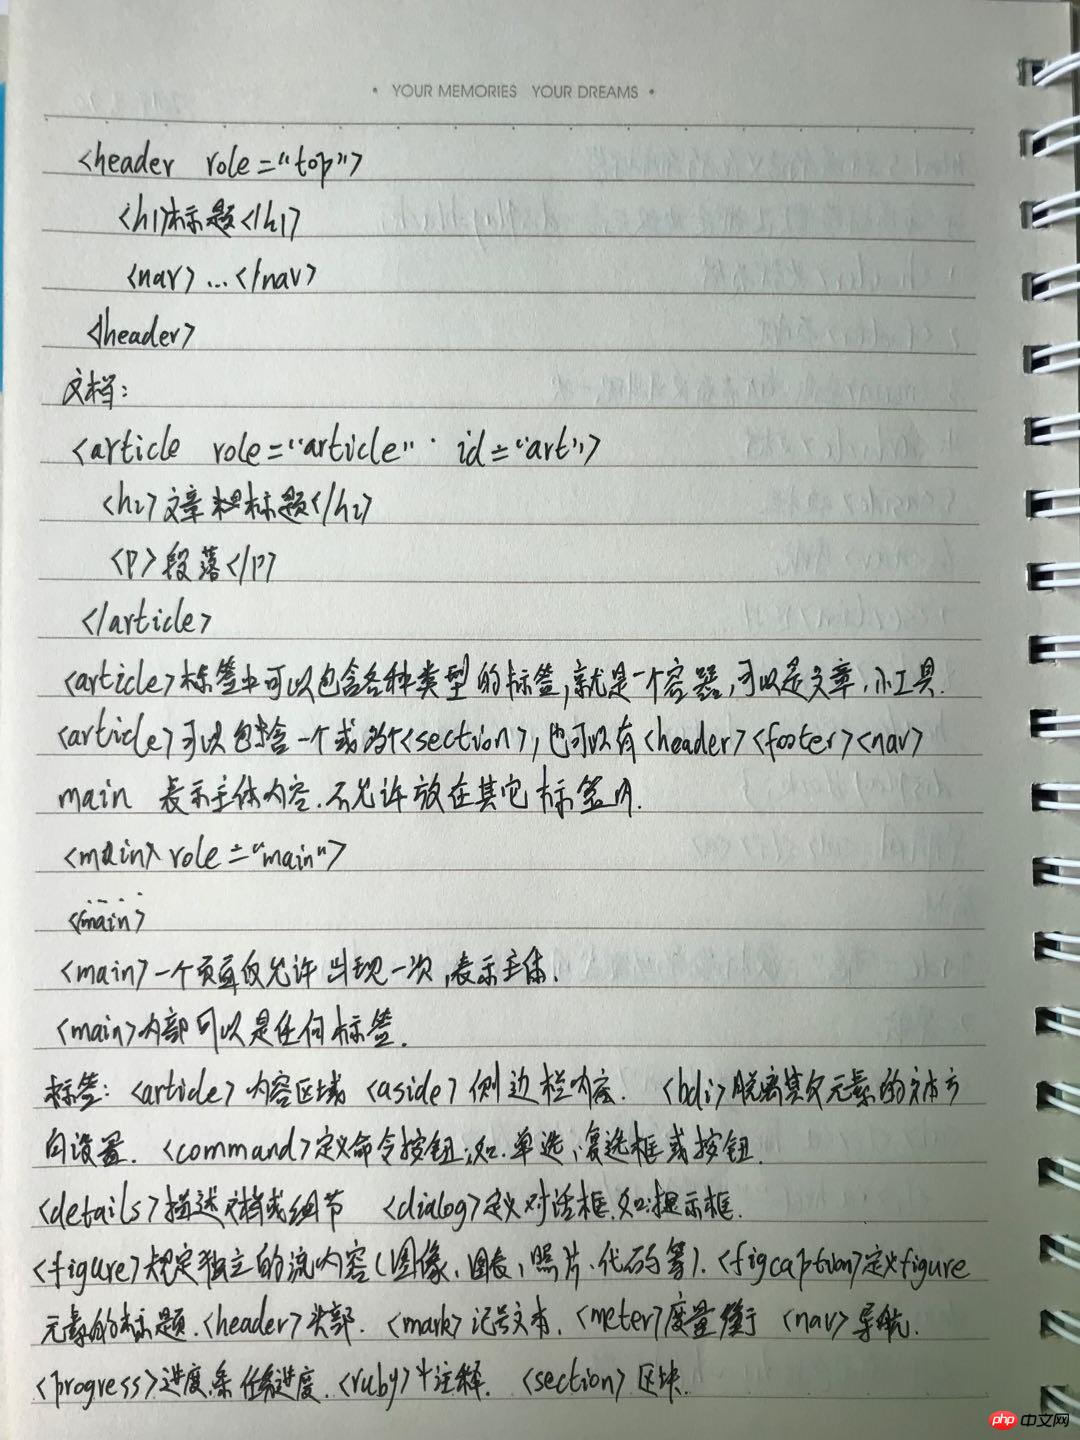 • YOUR MEMORIES YOUR DREAMS •
<header role="top">
<h1>标题</h1>
<nav>...</nav>
</header>
文档:
<article role="article" id="art">
<h2>文章标题</h2>
<p>段落</p>
</article>
<article>标签中可以包含各种类型的标签,就是一个容器,可以是文章、小工具.
<article>可以包含一个或多个<section>,也可以有<header><footer><nav>
main 表示主体内容.不允许放在其它标签内.
<main> role="main">
<main>
<main>一个页面仅允许出现一次,表示主体.
<main>内部可以是任何标签.
标签: <article>内容区域 <aside>侧边栏内容. <bdi>脱离其父元素的文本方
向设置. <command>定义命令按钮,如.单选、复选框或按钮.
<details>描述文档或细节 <dialog>定义对话框.如:提示框.
<figure>规定独立的流内容(图像、图表、照片、代码等). <figcaption>定义figure
元素的标题.<header>头部. <mark>记号文本. <meter>度量衡 <nav>导航.
<progress>进度条 任务进度. <ruby>注释. <section>区块.
php 中文网